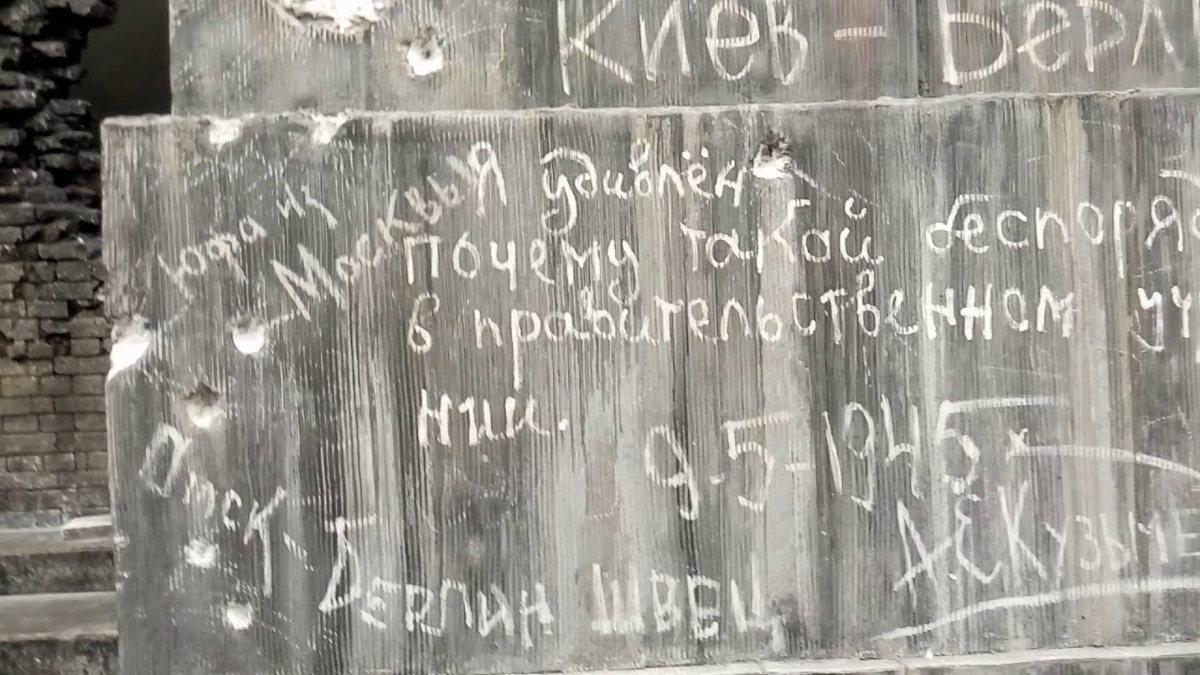 Киев - Берл
Юфа из
Москвы
Я удивлён
Почему такой беспоря
в правительственном уч
нии.
9-5-1945
Омск-
Берлин Швец
А.Е.Кузьме